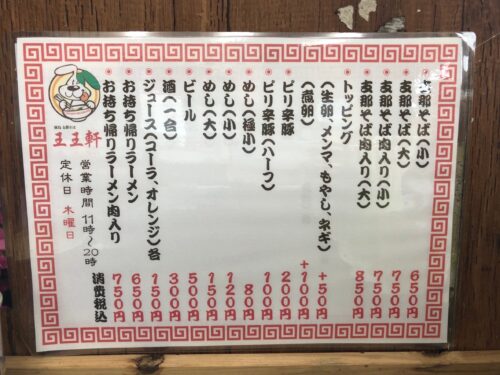 支那そば(小) 650円
支那そば(大) 750円
支那そば肉入り(小) 750円
支那そば肉入り(大) 850円
トッピング
(生卵、メンマ、もやし、ネギ) +50円
(煮卵) +100円
ピリ辛豚 200円
ピリ辛豚(ハーフ) 100円
めし(極小) 80円
めし(小) 120円
めし(大) 150円
ビール 500円
酒(一合) 300円
ジュース(コーラ、オレンジ)各 150円
お持ち帰りラーメン 650円
お持ち帰りラーメン肉入り 750円
消費税込
王王軒
営業時間 11時〜20時
定休日 木曜日